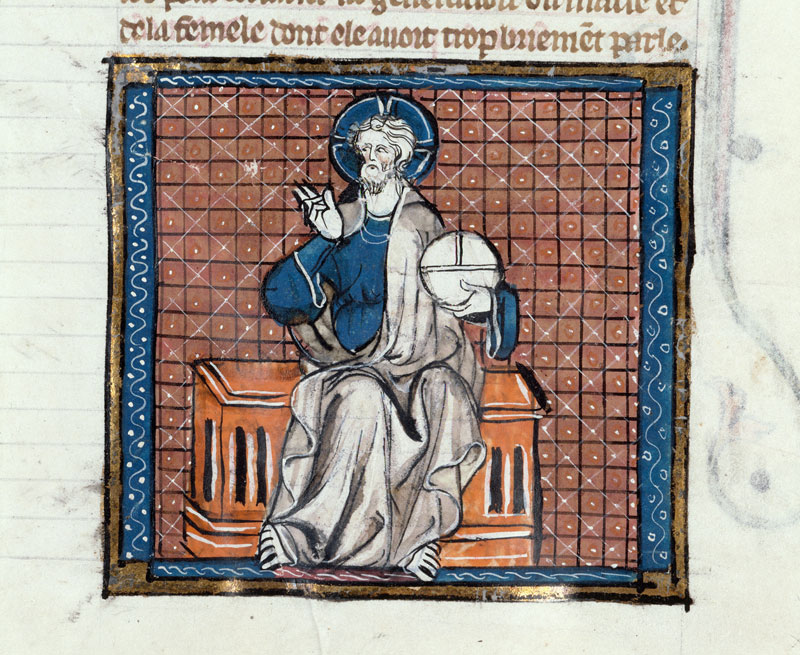 generation du malle et
de la femele dont ele auoit trop briemēt parle.